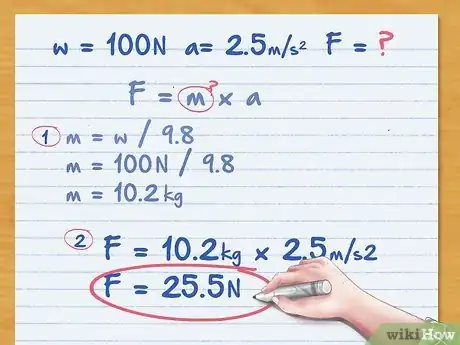 w = 100N a= 2.5m/s² F = ?
F = m? x a
1 m = w / 9.8
m = 100N / 9.8
m = 10.2kg
2 F = 10.2kg x 2.5m/s2
F = 25.5N
wikiHow